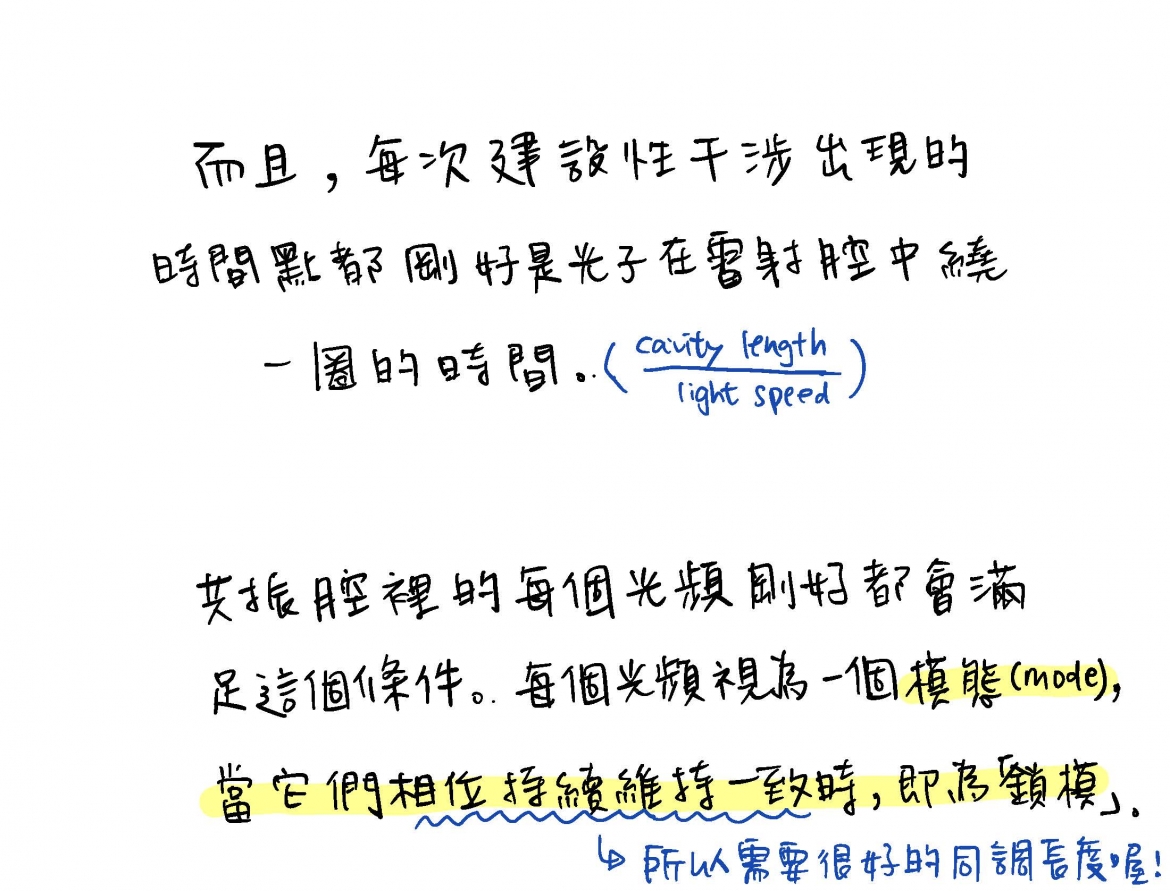 而且，每次建設性干涉出現的
時間點都剛好是光子在雷射腔中繞
一圈的時間。(cavity length / light speed)
共振腔裡的每個光頻剛好都會滿
足這個條件。每個光頻視為一個模態(mode),
當它們相位持續維持一致時，即為「鎖模」.
↳ 所以需要很好的同調長度喔!